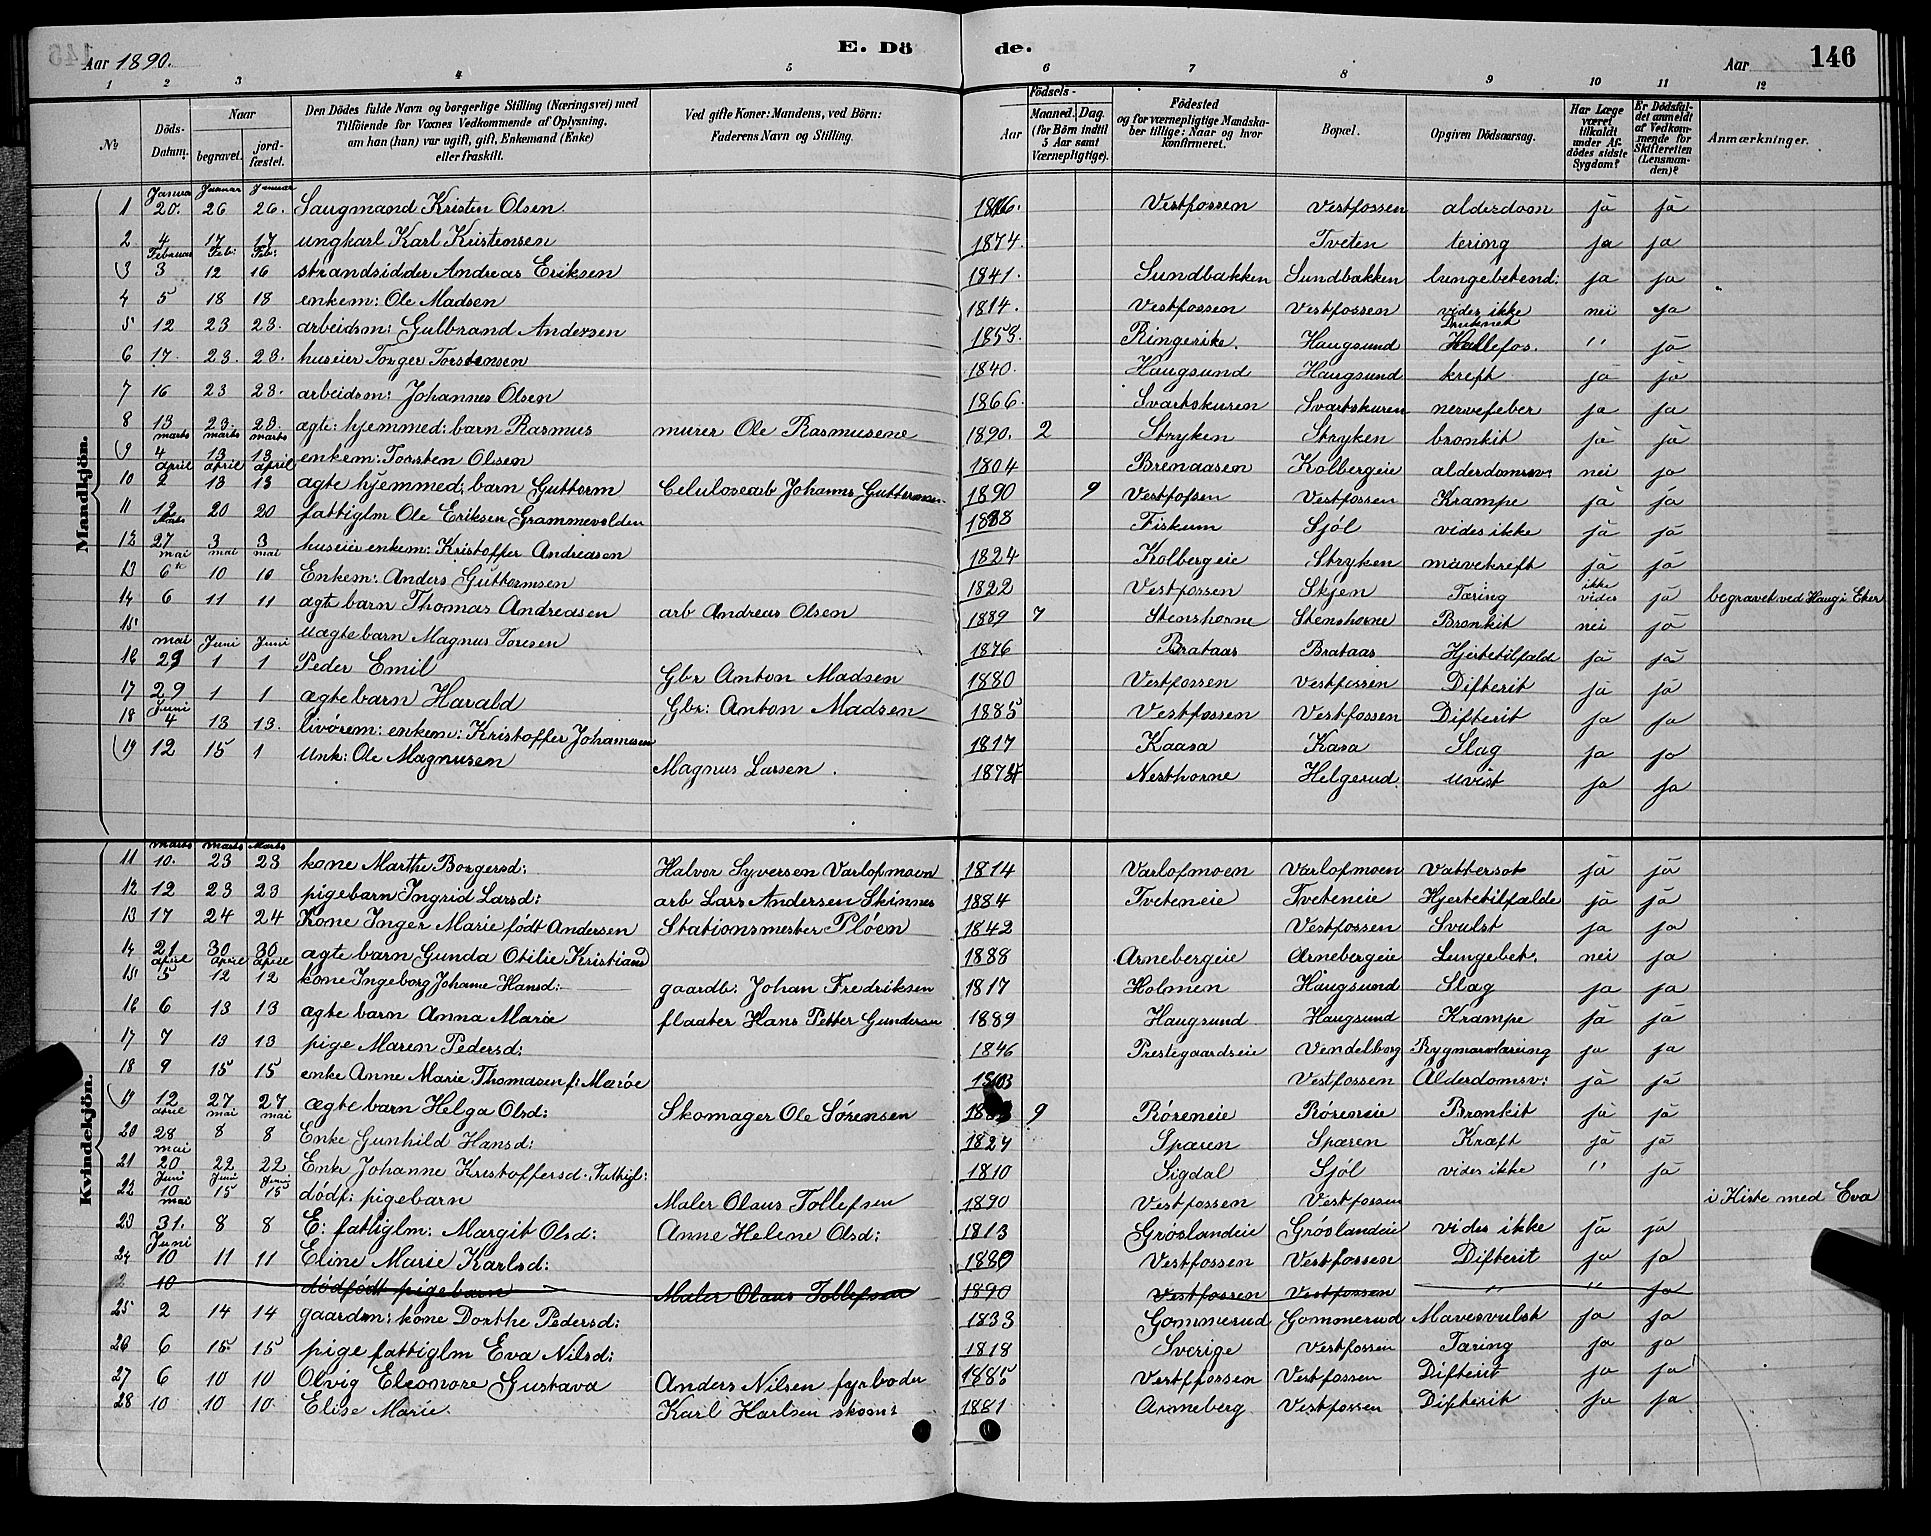 Aar 1890.
E. Dö
de.
Aar
146
1 2 3 4 5 6 7 8 9 10 11 12
№
Döds-Datum.
Naar
begravet.
jord-fæstet.
Den Dödes fulde Navn og borgerlige Stilling (Næringsvei) med Tilföiende for Voxnes Vedkommende af Oplysning, om han (hun) var ugift, gift, Enkemand (Enke) eller fraskilt.
Ved gifte Koner: Mandens, ved Börn: Faderens Navn og Stilling.
Födsels-
Aar
Maaned. Dag.
(for Börn indtil 5 Aar samt Værnepligtige).
Födested og for værnepligtige Mandskaber tillige: Naar og hvor konfirmeret.
Bopæl.
Opgiven Dödsaarsag.
Har Læge været tilkaldt under Afdödes sidste Sygdom?
Er Dödsfaldet anmeldt af Vedkommende for Skifteretten (Lensmanden)?
Anmærkninger.
Mandkjön.
Januar Januar Januar
1 20. 26 26. Saugmand Kristen Olsen. Vestfossen Vestfossen alderdoon ja ja
2 4 17 17 ungkarl Karl Kristensen 1874. Tveten tering ja ja
Februar Feb: Feb:
3 3 12 16 strandsidder Andreas Eriksen 1841. Sundbakken Sundbakken lungebetend: ja ja
4 5 18 18 enkem: Ole Madsen 1814. Vestfossen Vestfossen vides ikke nei ja
5 12 23 23. arbeidsm: Gulbrand Andersen 1853. Ringerike. Haugsund Druknet Hallefos. " ja
6 17. 23. 23. huseier Torger Torstensen 1840. Haugsund Haugsund kreft ja ja
7 16 23 23. arbeidsm: Johannes Olsen 1866. Svartskuren Svartskuren nervefeber ja ja
8 13 23. 23. ægte: hjemmed: barn Rasmus murer Ole Rasmusene 1890. 2 Stryken Stryken bronkit ja ja
marts marts marts
9 4 13 13 enkem: Torsten Olsen 1804 Brenaasen Kolbergeie alderdomssv: nei ja
april april april
10 2 13 13 ægte hjemmed: barn Guttorm Celulosearb Johannes Guttormsen 1890 9 Vestfossen Vestfossen Krampe ja ja
11 12 20 20 fattiglm Ole Eriksen Grammevolden Fiskum Sjöl vides ikke ja ja
Marts
12 27 3 3 huseier enkem: Kristoffer Andreasen 1824 Kolbergeie Stryken mavekreft ja ja
mai mai mai
13 6te 10 10 Enkem: Anders Guttormsen 1822 Vestfossen Skjen Tæring ikke vides ja begravet ved Haug i Eker
14 6 11 11 ægte barn Thomas Andreasen arb Andreas Olsen 1889 7 Stenshorne Stenshorne Bronkit nei ja
15 uægte barn Magnus Toresen 1876 Brataas Brataas Hjertetilfald ja ja
mai Juni Juni
16 29 1 1 Peder Emil Gbr Anton Madsen 1880 Vestfossen Vestfossen Difterit ja ja
17 29 1 1 ægte barn Harald Gbr: Anton Madsen 1885 Vestfossen Vestfossen Difterit ja ja
Juni
18 4 13 13. livörem: enkem: Kristoffer Johannesen 1817 Kaasa Kasa Slag ja ja
19 12 15 1 Unk: Ole Magnusen Magnus Larsen. Nesthorne Helgerud. uvist ja ja
Kvindekjön.
marts marts Marts
11 10. 23 23 kone Marthe Borgersd: Halvor Syversen Varlofmoen 1814 Varlofmoen Varlofmoen Vattersot ja ja
12 12 23 23 pigebarn Ingrid Larsd: arb Lars Andersen Skinnes 1884 Tveteneie Tveteneie Hjertetilfælde ja ja
13 17 24 24 Kone Inger Marie född Andersen Stationsmester Plöen 1842 Vestfossen Svulst ja ja
14 21 30 30 ægte barn Gunda Otilie Kristiansd 1888 Arnebergeie Arnebergeie Lungebet. nei ja
april april april
15 5 12 12 kone Ingeborg Johanne Hansd: gaardb: Johan Fredriksen 1817 Holmen Haugsund Slag ja ja
16 6 13 13 ægte barn Anna Marie flaater Hans Petter Gundersen 1889 Haugsund Haugsund Krampe ja ja
17 7 13 13 pige Maren Pedersd: 1846 Prestegaardseie Vendelborg Rygmarvtæring ja ja
18 9 15 15 enke Anne Marie Thomasen f: Maröe 1803 Vestfossen Alderdomsv: ja ja
19 12 27 27 ægte barn Helga Olsd: Skomager Ole Sörensen 9 Röreneie Röreneie Bronkit ja ja
april mai mai
20 28 8 8 Enke Gunhild Hansd: 1824 Sparen Sparen Kræft ja ja
mai
21 20 22 22 Enke Johanne Kristoffersd. Fattigl: 1810 Sigdal Sjöl vides ikke " ja
Juni Juni Juni
22 10 15 15 dödf: pigebarn Maler Olaus Tollefsen 1890 Vestfossen Vestfossen i Kiste med Eva
mai
23 31. 8 8 E: fattiglm: Margit Olsd: Anne Helene Olsd: 1813 Gröslandeie Gröslandeie vides ikke ja ja
Juni
24 10 11 11 Eline Marie Karlsd: 1880 Vestfossen Vestfossen Difterit ja ja
2 10 dödfödt pigebarn Maler Olaus Tollefsen 1890 Vestfossen Vestfossen " " ja
25 2 14 14 gaardm: kone Dorthe Pedersd: 1833 Gommerud Gommerud Mavesvulst ja ja
26 6 15 15 pige fattiglm Eva Nilsd: 1818 Sverige Vestfossen Tæring ja ja
27 6 10 10 Olvig Eleonore Gustava Anders Nilsen fyrböder 1885 Vestfossen Vestfossen Difterit ja ja
28 10 10 10. Elise Marie. Karl Karlsen skom: 1881 Arneberg Vestfossen Difterit ja ja